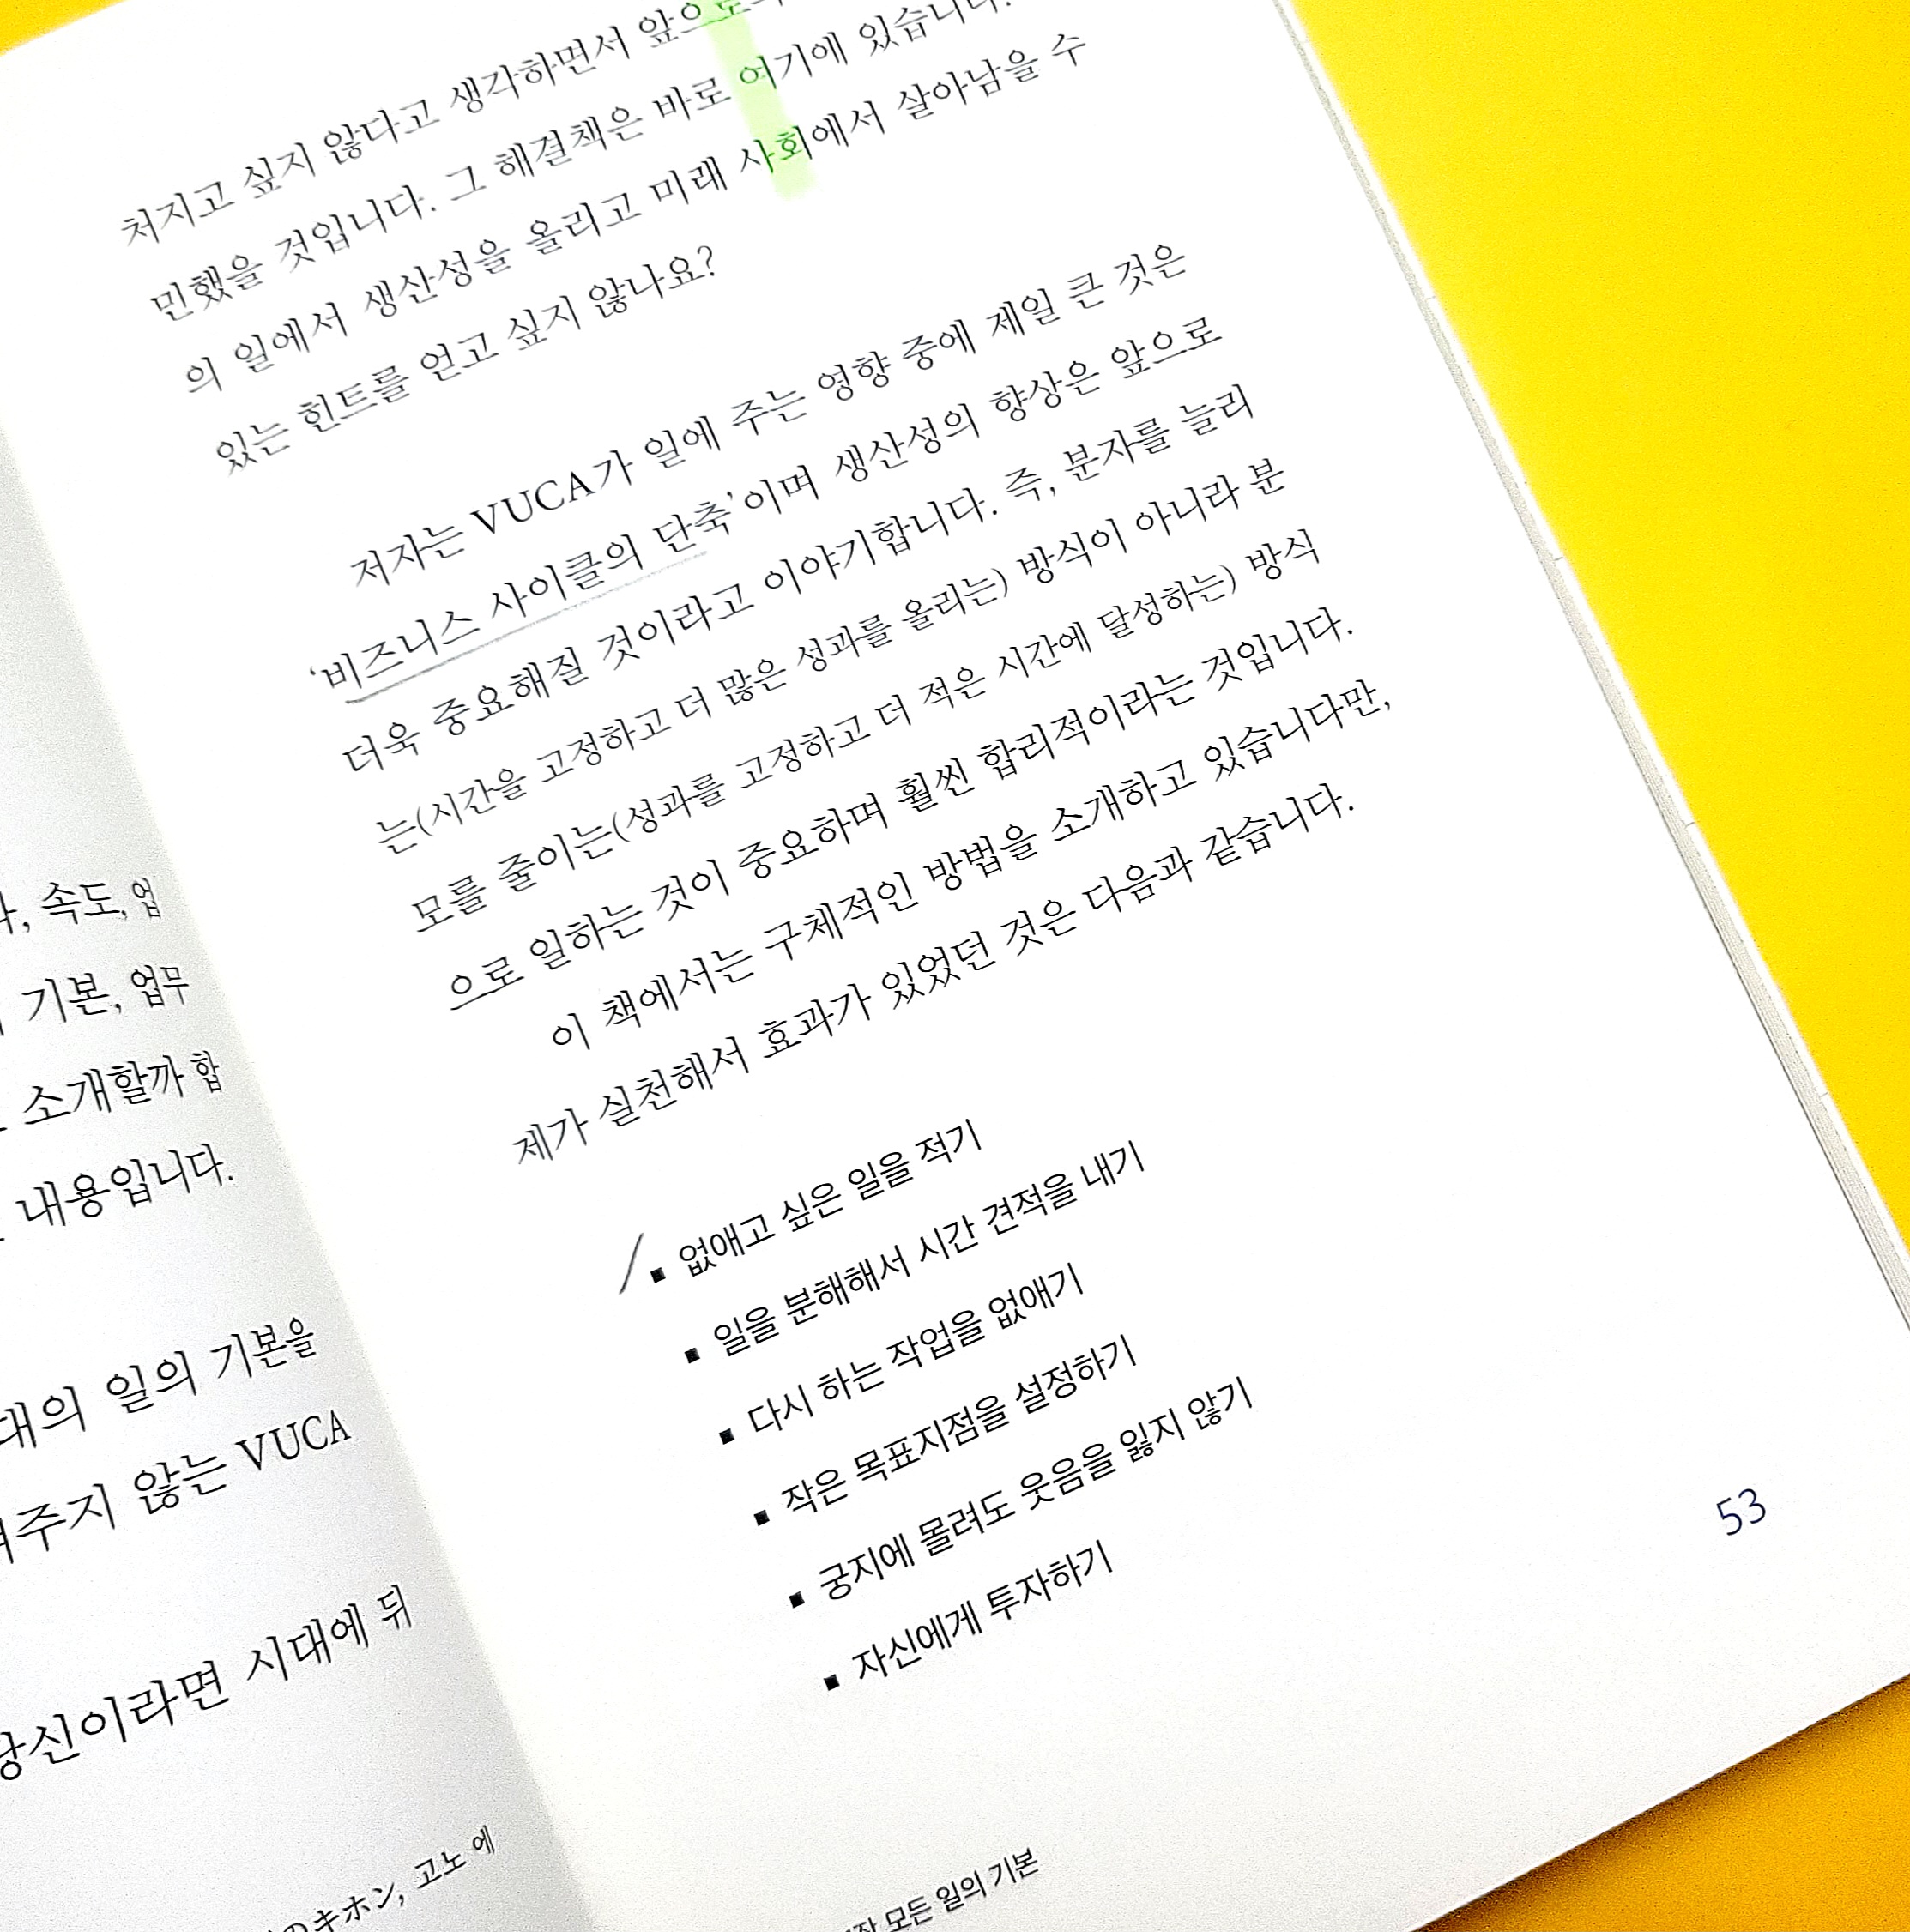 속도, 업
기본, 업무
소개할까 합
내용입니다.
대의 일의 기본을
주지 않는 VUCA
당신이라면 시대에 뒤
のキホン, 고노 에
처지고 싶지 않다고 생각하면서
민했을 것입니다. 그 해결책은 바로 여기에 있습니다.
의 일에서 생산성을 올리고 미래 사회에서 살아남을 수
있는 힌트를 얻고 싶지 않나요?
저자는 VUCA가 일에 주는 영향 중에 제일 큰 것은
‘비즈니스 사이클의 단축’이며 생산성의 향상은 앞으로
더욱 중요해질 것이라고 이야기합니다. 즉, 분자를 늘리
는(시간을 고정하고 더 많은 성과를 올리는) 방식이 아니라 분
모를 줄이는(성과를 고정하고 더 적은 시간에 달성하는) 방식
으로 일하는 것이 중요하며 훨씬 합리적이라는 것입니다.
이 책에서는 구체적인 방법을 소개하고 있습니다만,
제가 실천해서 효과가 있었던 것은 다음과 같습니다.
▪ 없애고 싶은 일을 적기
▪ 일을 분해해서 시간 견적을 내기
▪ 다시 하는 작업을 없애기
▪ 작은 목표지점을 설정하기
▪ 궁지에 몰려도 웃음을 잃지 않기
▪ 자신에게 투자하기
53
모든 일의 기본